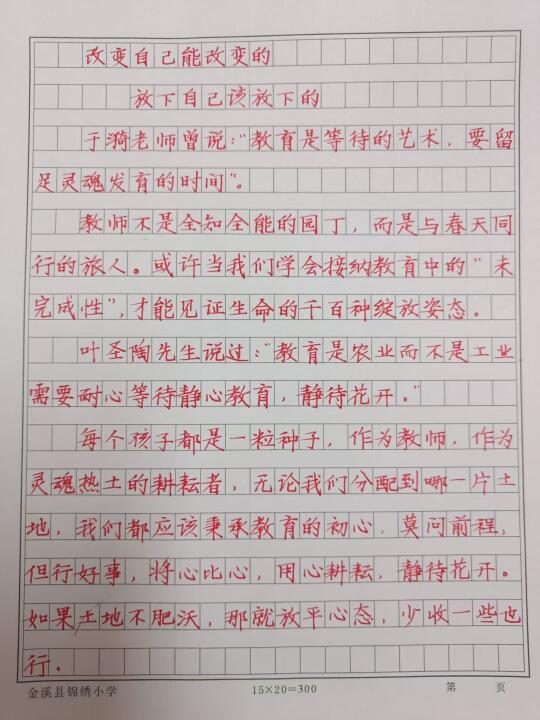 改变自己能改变的
放下自己该放下的
于漪老师曾说:“教育是等待的艺术，要留
足灵魂发育的时间”。
教师不是全知全能的园丁，而是与春天同
行的旅人。或许当我们学会接纳教育中的“未
完成性”,才能见证生命的千百种绽放姿态。
叶圣陶先生说过:“教育是农业而不是工业
需要耐心等待静心教育，静待花开。”
每个孩子都是一粒种子，作为教师，作为
灵魂热土的耕耘者，无论我们分配到哪一片土
地，我们都应该秉承教育的初心，莫问前程，
但行好事，将心比心，用心耕耘，静待花开。
如果土地不肥沃，那就放平心态，少收一些也
行。
金溪县锦绣小学 15×20=300 第 页